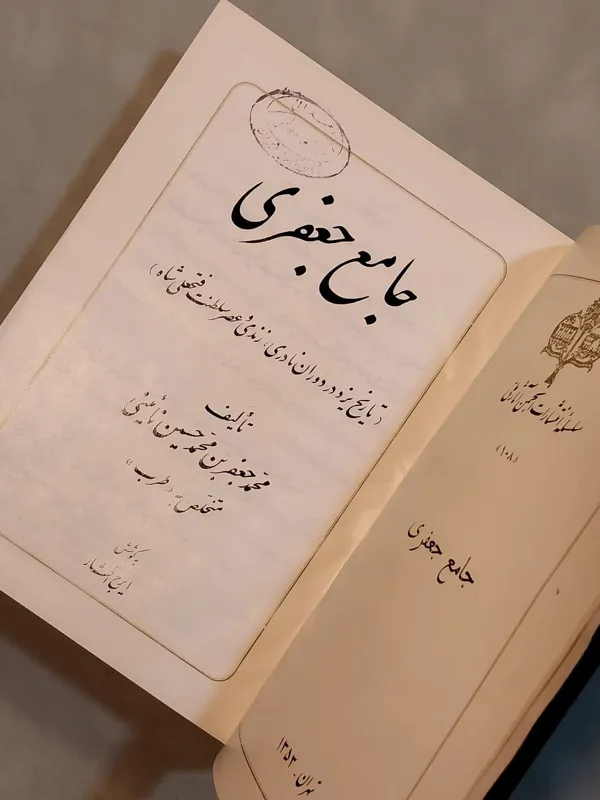 جامع جعفری
(تاریخ یزد در دوران نادری، زندی و عصر سلطنت فتحعلی شاه)
تألیف
محمد جعفر بن محمد حسین نائینی
متخلص به «طرب»
بکوشش
ایرج افشار
سلسله انتشارات انجمن آثار ملی
«۱۰۸»
جامع جعفری
تهران. ۱۳۵۳